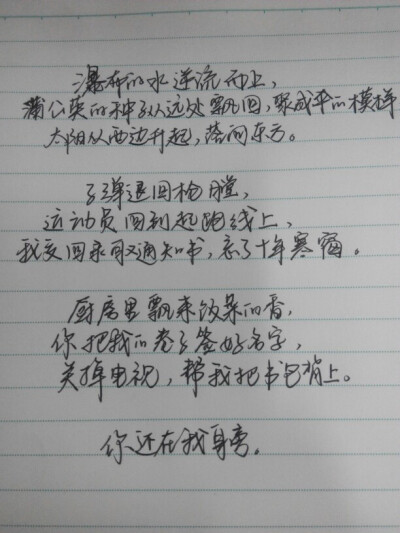 瀑布的水逆流而上，
蒲公英的种子从远处飘回，聚成伞的模样
太阳从西边升起，落向东方。
子弹退回枪膛，
运动员回到起跑线上，
我交回录取通知书，忘了十年寒窗。
厨房里飘来饭菜的香，
你把我的卷子签好名字，
关掉电视，帮我把书包背上。
你还在我身旁。